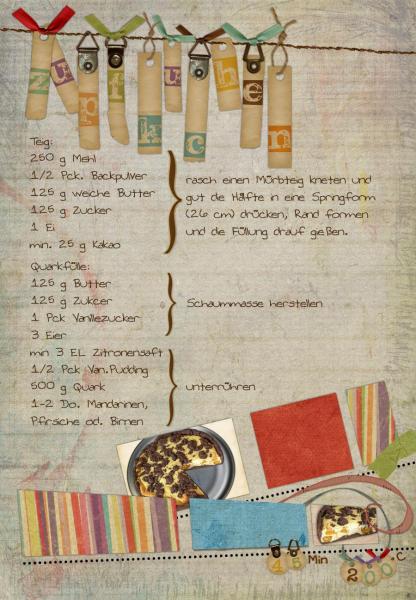 Zupfkuchen
Teig:
250 g Mehl
1/2 Pck. Backpulver
125 g weiche Butter
125 g Zucker
1 Ei
min. 25 g Kakao
rasch einen Mürbteig kneten und
gut die Hälfte in eine Springform
(26 cm) drücken, Rand formen
und die Füllung drauf gießen.
Quarkfülle:
125 g Butter
125 g Zukcer
1 Pck Vanillezucker
3 Eier
Schaummasse herstellen
min 3 EL Zitronensaft
1/2 Pck Van.Pudding
500 g Quark
1-2 Do. Mandarinen,
Pfirsiche od. Birnen
unterrühren
45 Min
200 °C